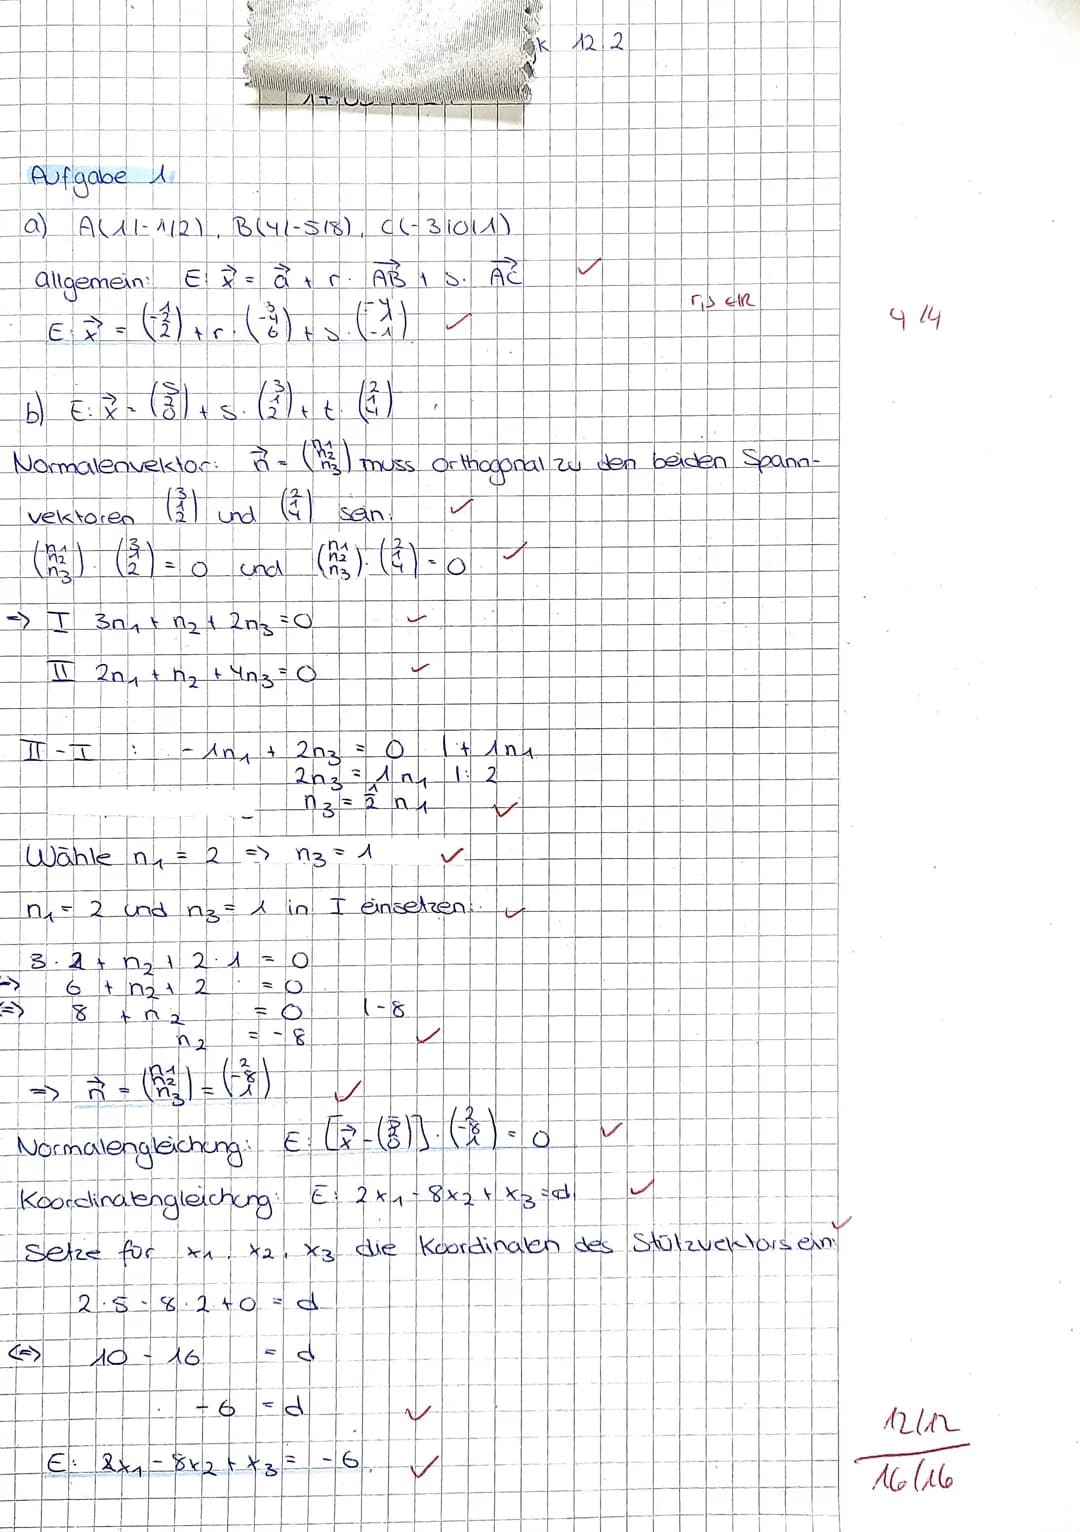 k 12.2
Aufgabe 1
a) A(1|-1|2), B(4|-5|8), C(-3|0|1)
allgemein: E: x⃗ = a⃗ + r · AB⃗ + s · AC⃗ ✓
r,s ∈ℝ
E: x⃗ = (1 -1 2) + r · (3 -4 6) + s · (-4 1 -1) ✓
4/4
b) E: x⃗ = (5 2 0) + s · (3 1 2) + t · (2 1 4)
Normalenvektor: n⃗ = (n1 n2 n3) muss orthogonal zu den beiden Spann-
vektoren (3 1 2) und (2 1 4) sein. ✓
(n1 n2 n3) · (3 1 2) = 0 und (n1 n2 n3) · (2 1 4) = 0 ✓
=> I 3n1 + n2 + 2n3 = 0 ✓
II 2n1 + n2 + 4n3 = 0 ✓
II - I : - 1n1 + 2n3 = 0 | + 1n1
2n3 = 1n1 | : 2
n3 = 1/2 n1 ✓
Wähle n1 = 2 => n3 = 1 ✓
n1 = 2 und n3 = 1 in I einsetzen: ✓
3 · 2 + n2 + 2 · 1 = 0
=> 6 + n2 + 2 = 0
(=> 8 + n2 = 0 | - 8
n2 = - 8 ✓
=> n⃗ = (n1 n2 n3) = (2 -8 1) ✓
Normalengleichung: E: [x⃗ - (5 2 0)] · (2 -8 1) = 0 ✓
Koordinatengleichung: E: 2x1 - 8x2 + x3 = d ✓
Setze für x1, x2, x3 die Koordinaten des Stützvektors ein: ✓
2 · 5 - 8 · 2 + 0 = d
(=> 10 - 16 = d
- 6 = d ✓
12/12
E: 2x1 - 8x2 + x3 = - 6. ✓
16/16